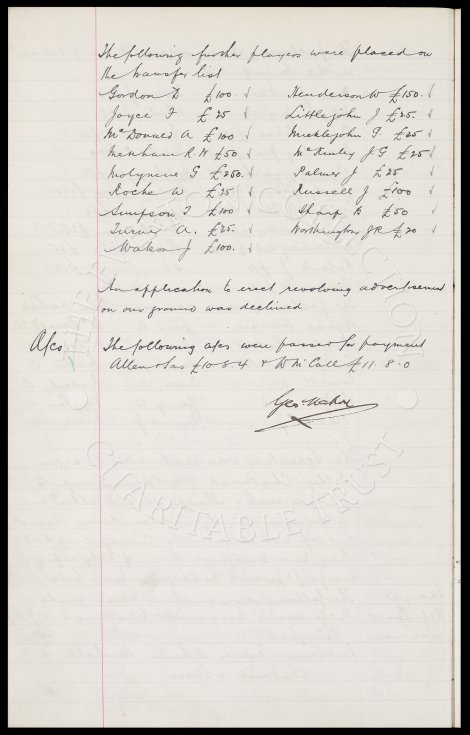 The following further players were placed on
the transfer list
Gordon D £100. Henderson W £150.
Joyce F £25 Littlejohn J £25.
McDonald A £100 Micklejohn F. £25
Menham R. W £50 McKinley J G £25
Molyneux G £250. Palmer J £25
Roche W £25 Russell J £100
Simpson T £100 Sharp B £50
Turner A. £25. Worthington J R £20
Watson J £100.
An application to erect revolving advertisement
on our ground was declined.
A/cs. The following a/cs were passed for payment
Allen & Sons £10-8-4 & W McCall £11. 8. 0
Geo. Mahon
THE EVERTON COLLECTION
CHARITABLE TRUST